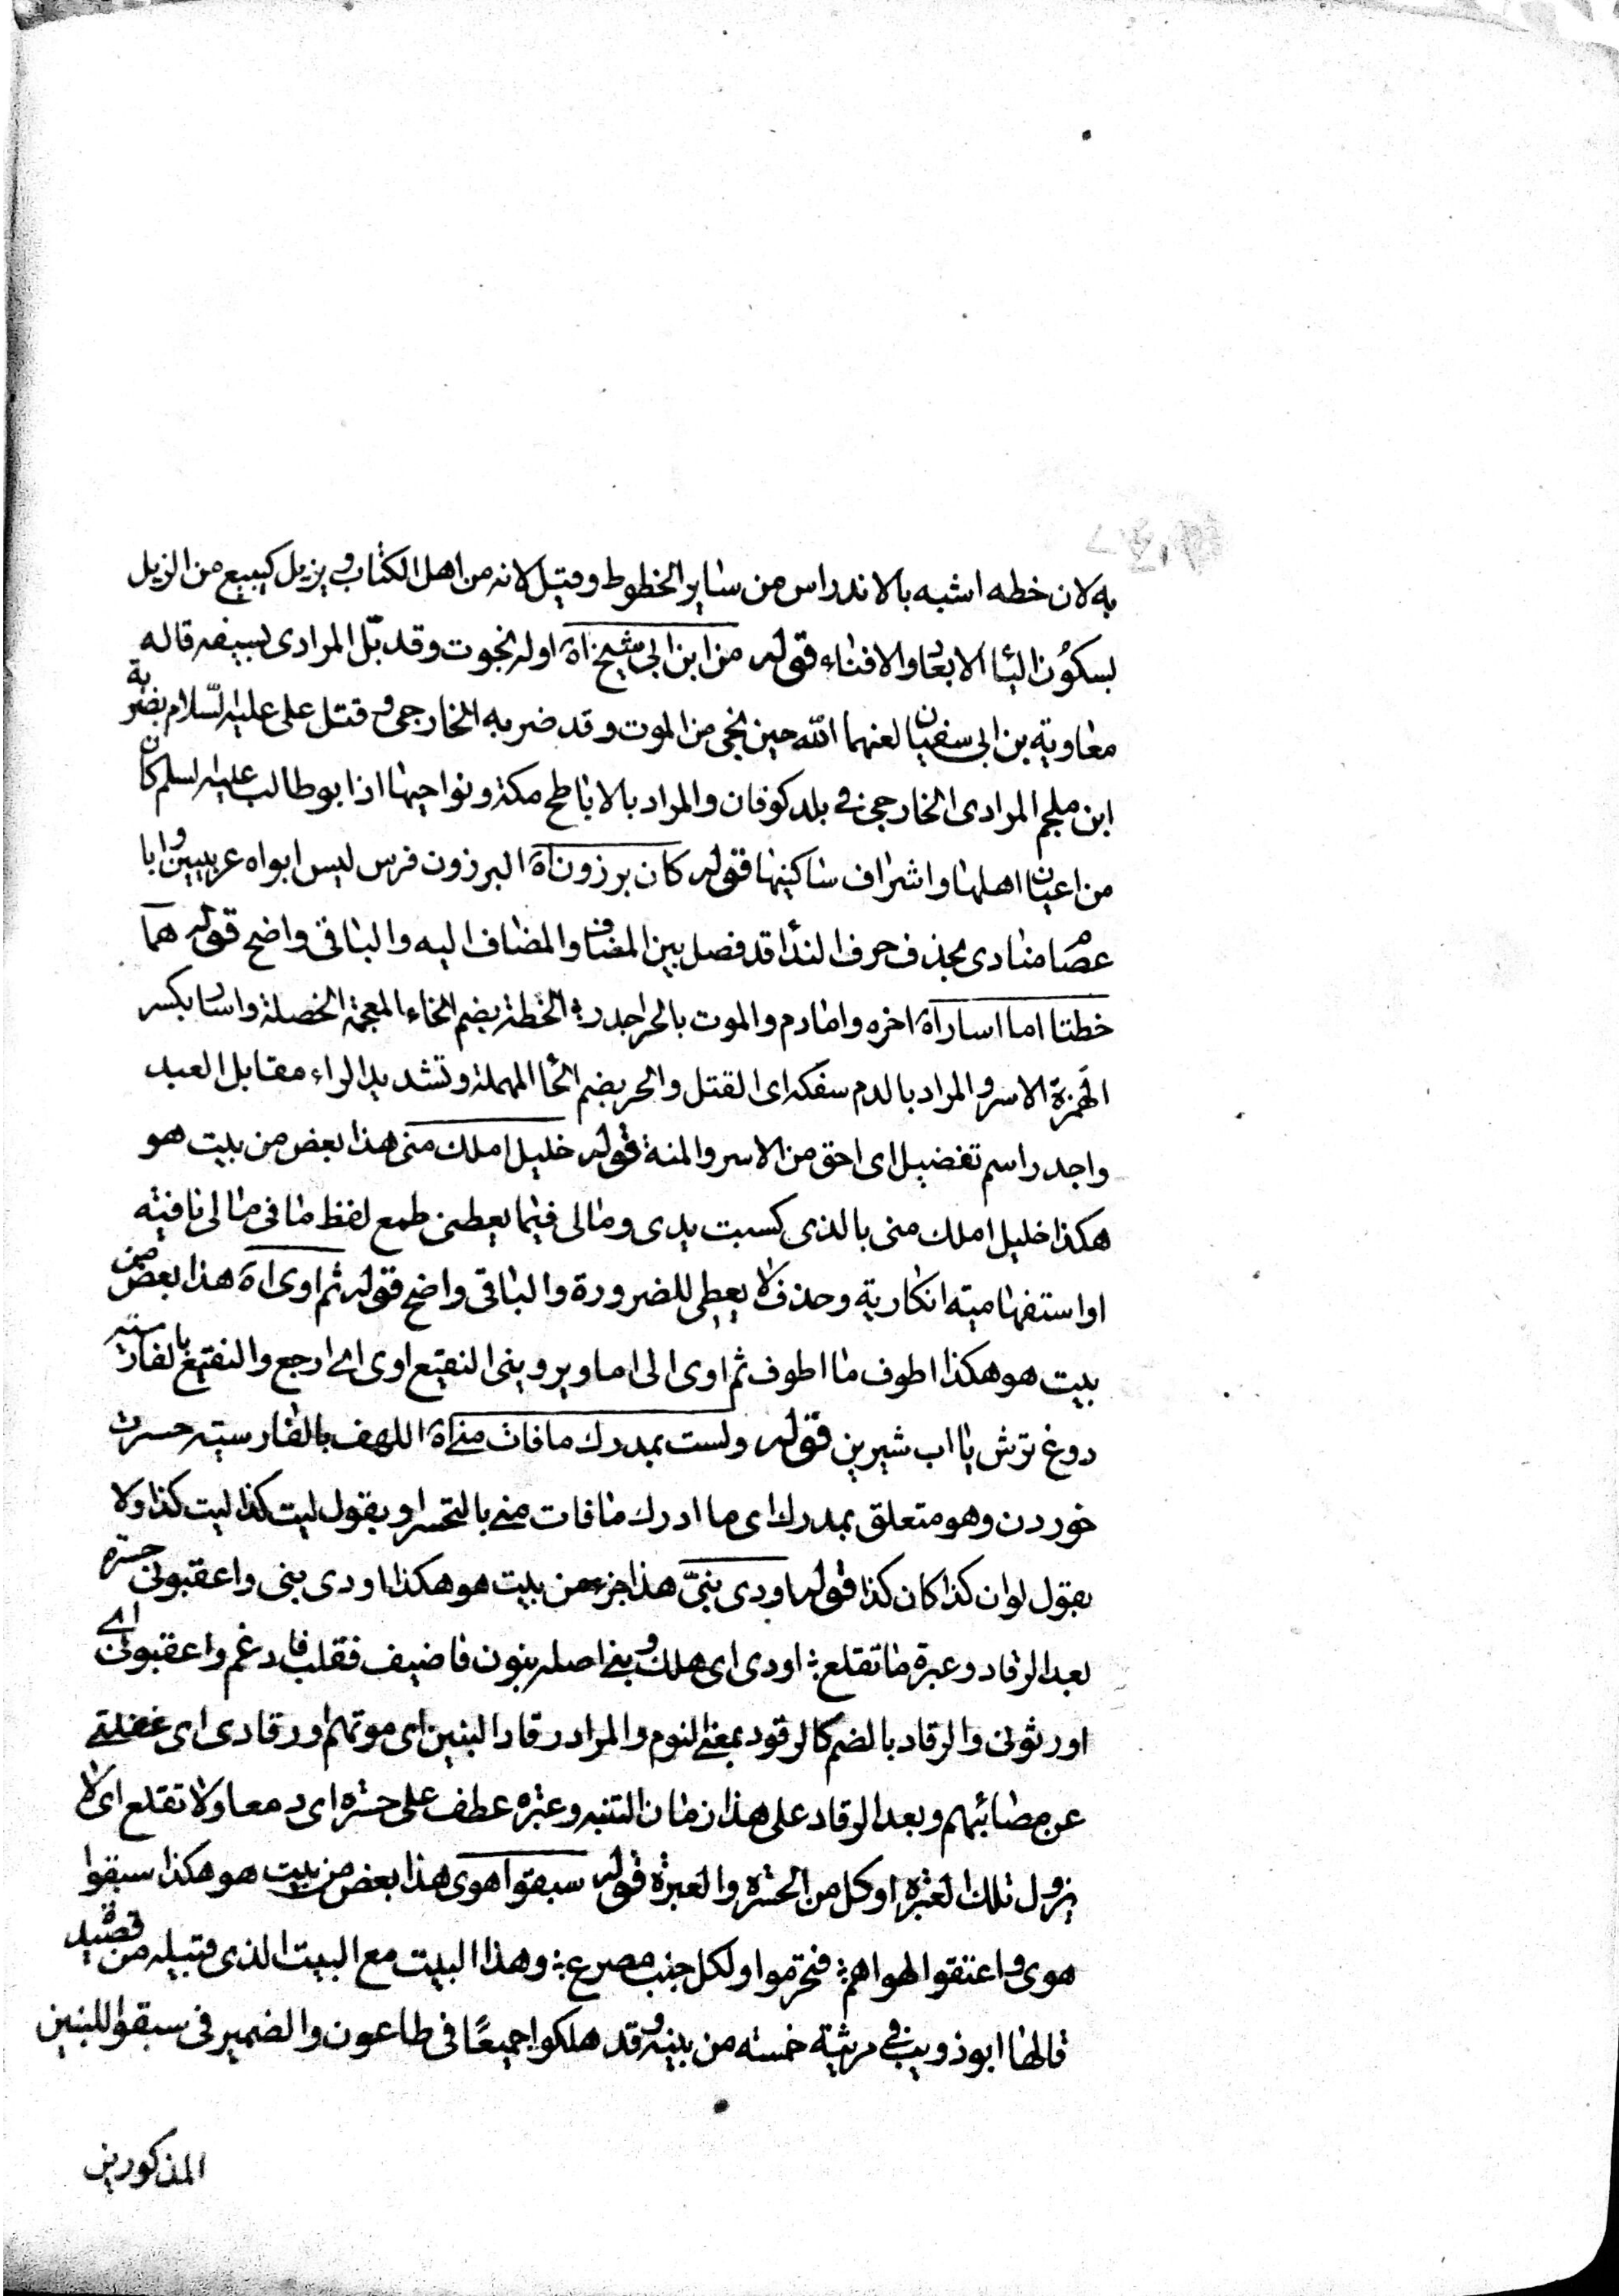 به لان خطه اشبه بالاندراس من ساير الخطوط وقيل لانه من اهل الكتاب ويزيل كيبيع من الزيل
بسكون اليا الابعاد والافناء قوله من ابن ابى شيخ اه اوله نجوت وقد بل المرادى بسيفه قاله
معاوية بن ابى سفيان لعنهما الله حين نجى من الموت وقد ضربه الخارجى وقتل على عليه السلام بضربة
ابن ملجم المرادى الخارجى فى بلد كوفان والمراد بالاباطح مكة ونواحيها اذ ابو طالب عليه السلم كان
من اعيان اهلها واشراف ساكنيها قوله كان برزون اه البرزون فرس ليس ابواه عربيين وابا
عصام منادى بحذف حرف الندا قد فصل بين المضاف والمضاف اليه والباقى واضح قوله هما
خطتا اما اسار اه اخره واما دم والموت بالحر اجدر الخطة بضم الخاء المعجمة الخصلة واسار بكسر
الهمزة الاسر والمراد بالدم سفكه اى القتل والحر بضم الحا المهملة وتشديد الراء مقابل العبد
واجدر اسم تفضيل اى احق من الاسر والمنة قوله خليل املك منى هذا بعض من بيت هو
هكذا خليل املك منى بالذى كسبت يدى ومالى فيما يعطين طمع لفظ ما فى مالى نافيه
او استفهاميته انكارية وحذف لا يعطى للضرورة والباقى واضح قوله ثم اوى اه هذا بعض من
بيت هو هكذا اطوف ما اطوف ثم اوى الى اما ويروينى النقيع اوى اى ارجع والنقيع بالفارسيه
دوغ ترش يا اب شيرين قوله ولست بمدرك مافات منى اه اللهف بالفارسيته حسرت
خوردن وهو متعلق بمدرك اى ما ادرك مافات منى بالتحسر او بقول ليت كذا ليت كذا ولا
بقول لو ان كذا كان كذا قوله اودى بنىّ هذا جزء من بيت هو هكذا اودى بنى واعقبونى حسرة
بعد الرقاد وعبرة ما تقلع اودى اى هلك وبنى اصله بنون فاضيف فقلب فادغم واعقبونى اى
اورثونى والرقاد بالضم كالرقود بمعنى النوم والمراد رقاد البنين اى موتهم او رقادى اى غفلتى
عن مصائبهم وبعد الرقاد على هذا زمان التنبه وعبره عطف على حسره اى دمعا ولا تقلع اى لا
يزول تلك العبره او كل من الحسره والعبرة قوله سبقوا هوى هذا بعض من بيت هو هكذا سبقوا
هوى واعنقوا لهواهم فتخرموا ولكل جنب مصرع وهذا البيت مع البيت الذى قبيله من قصيدة
قالها ابو ذويب فى مرثية خمسه من بنيه وقد هلكوا جميعًا فى طاعون والضمير فى سبقوا للبنين
المذكورين